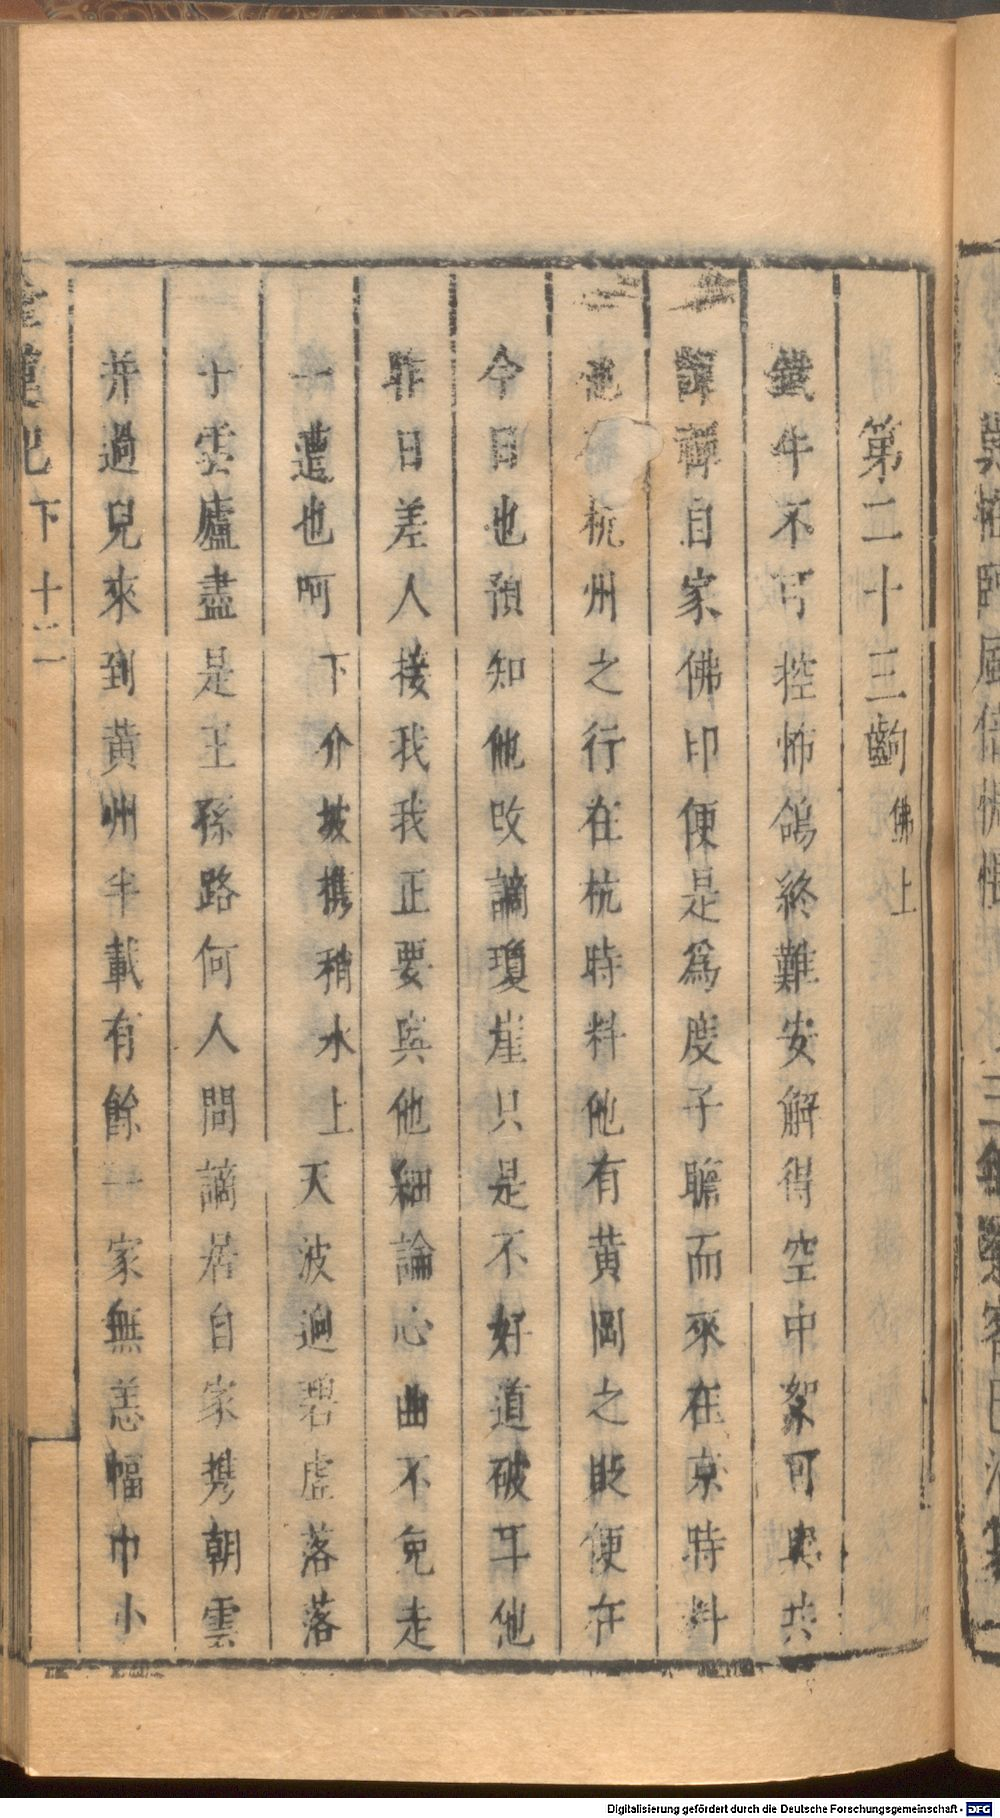 第二十三齣 佛上
鐵牛不可控怖鴿終難安解得空中絮可與共
譚禪自家佛印便是爲度子瞻而來在京時料
他 杭州之行在杭時料他有黃岡之貶便在
今日也預知他改謫瓊崖只是不好道破耳他
昨日差人接我我正要與他細論心曲不免走
一遭也呵 下 介 坡攜稍水上 天波逈碧虛落落
于雲廬盡是王孫路何人問謫居自家携朝雲
并過兒來到黃州半載有餘一家無恙幅巾小
金蓮記 下 十二
Digitalisierung gefördert durch die Deutsche Forschungsgemeinschaft - DFG